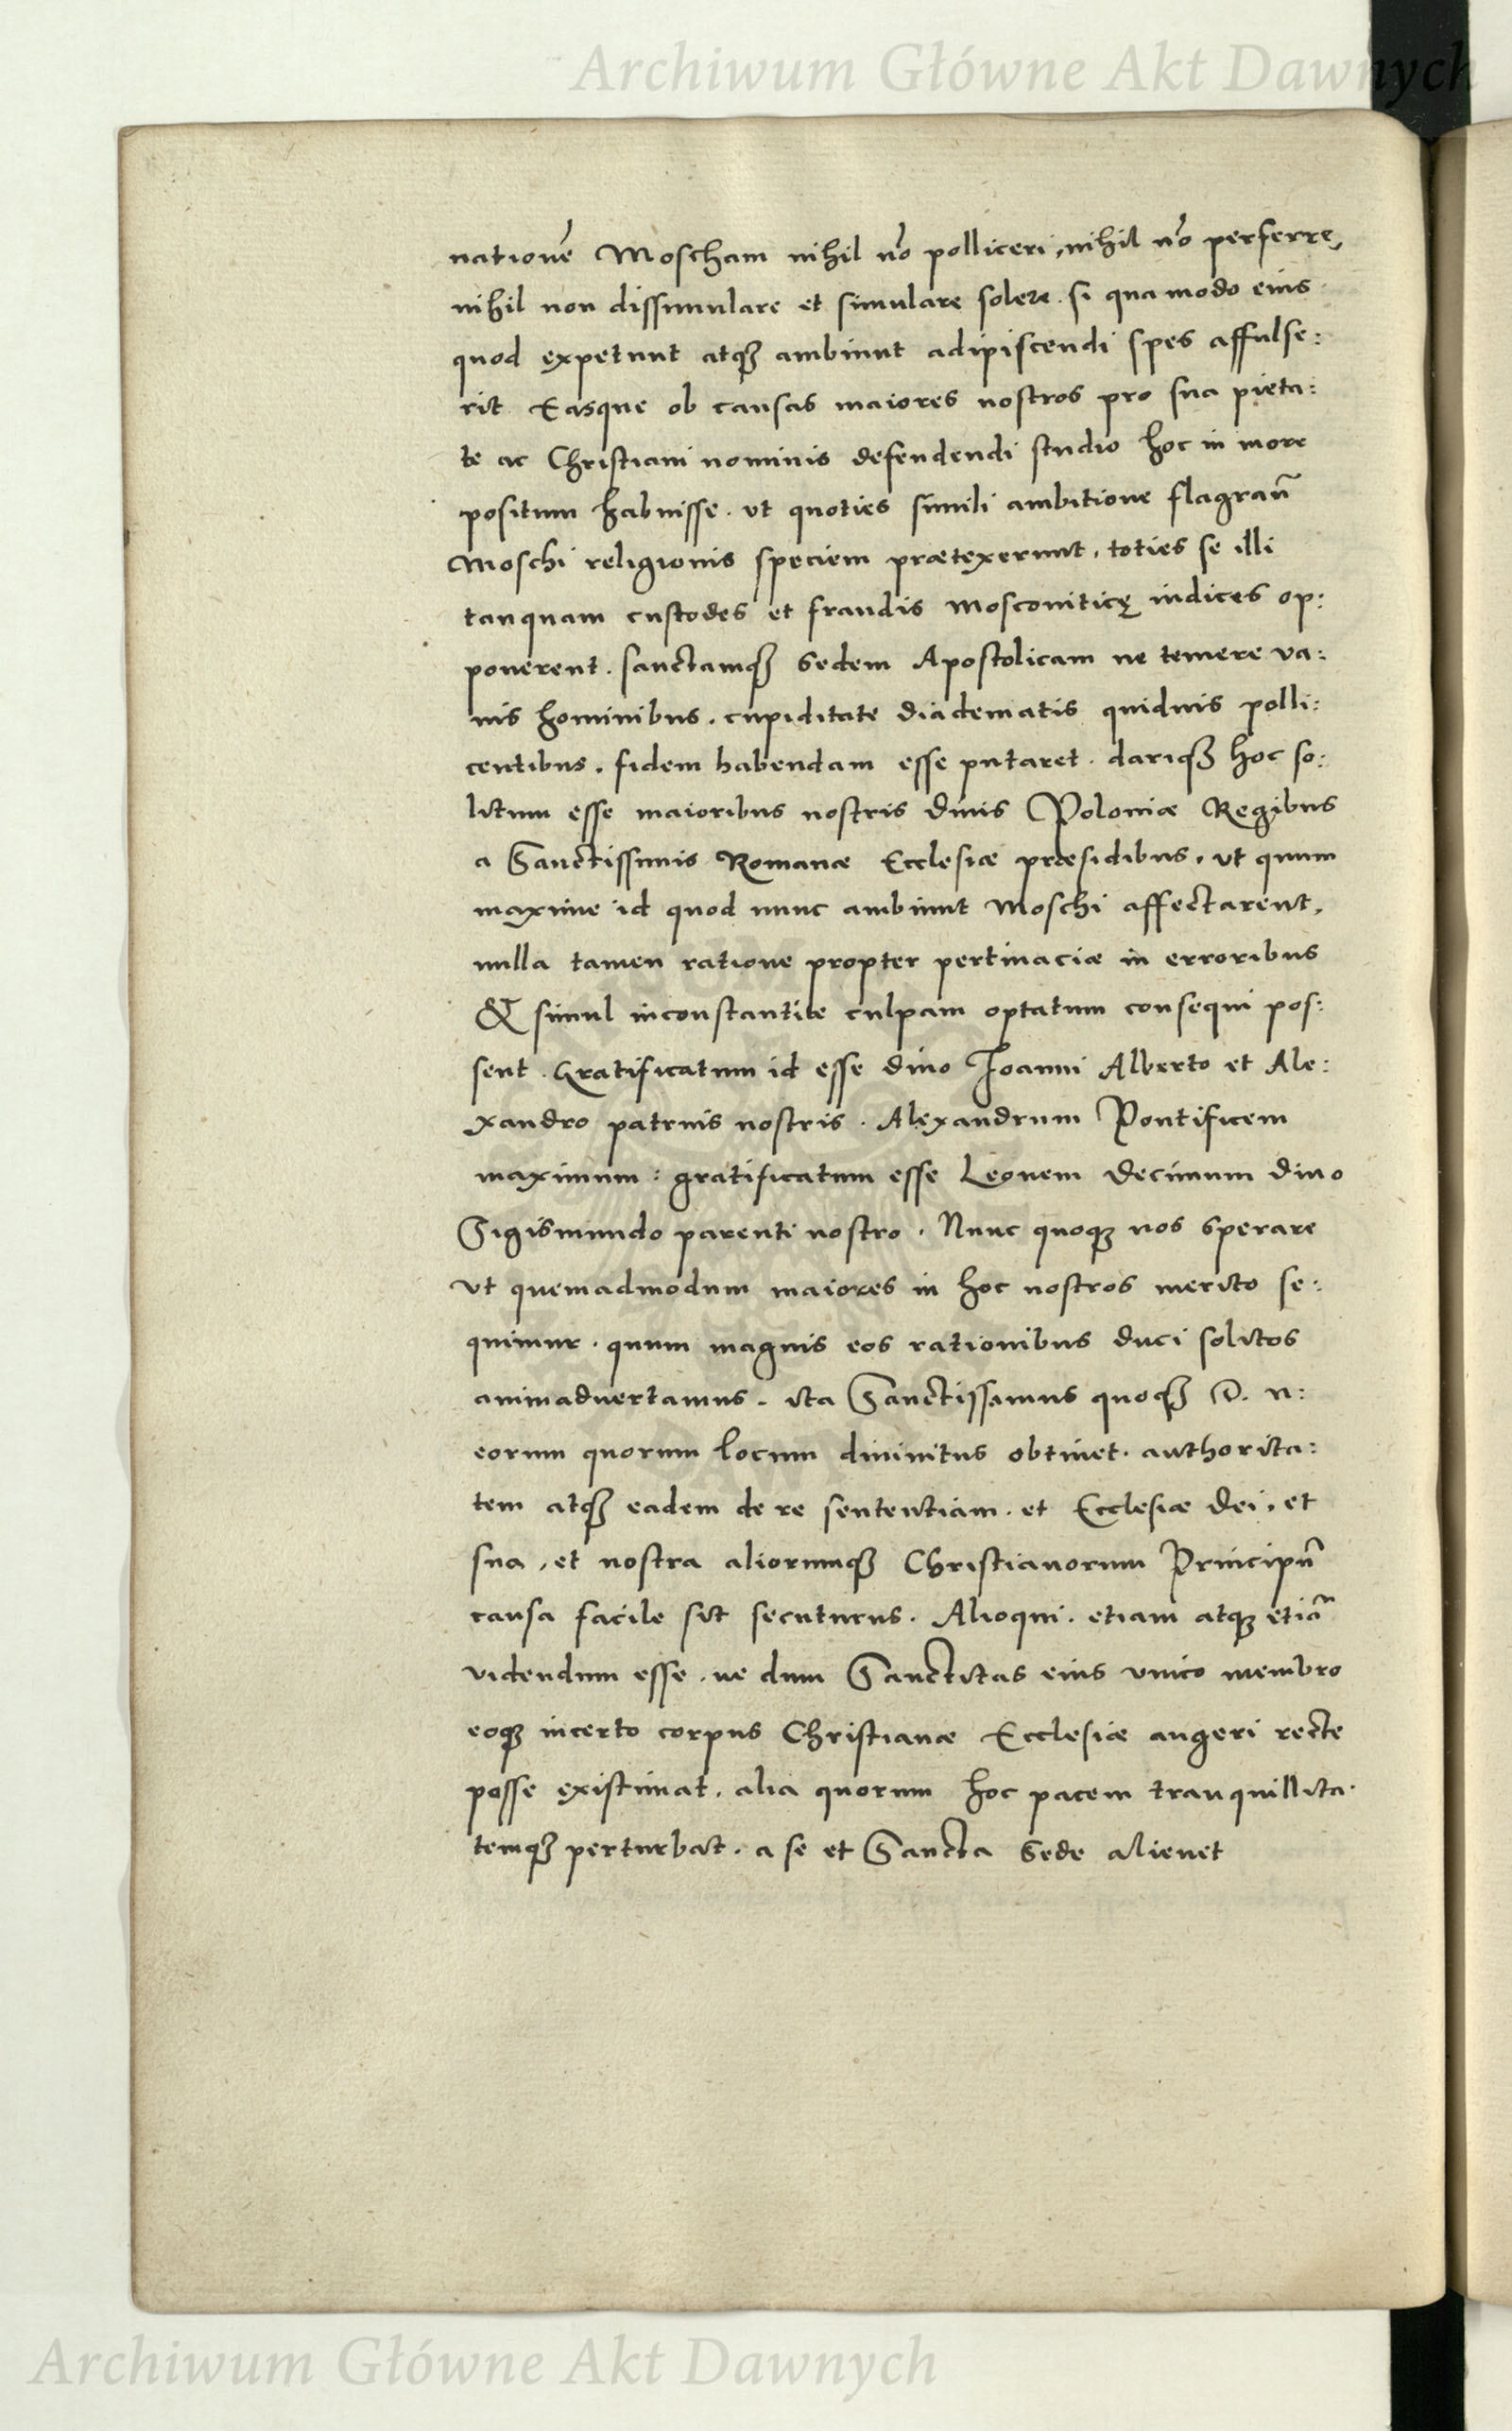 Archiwum Główne Akt Dawnych
nationē Moscham nihil nō polliceri, nihil nō perferre,
nihil non dissimulare et simulare solere. si qua modo eius
quod expetunt atq3 ambiunt adipiscendi spes affulse:
rit Easque ob causas maiores nostros pro sua pieta:
te ac Christiani nominis defendendi studio hoc in more
positum habuisse. ut quoties simili ambitione flagran̄
Moschi religionis speciem prætexerunt, toties se illi
tanquam custodes et fraudis Mosconiticę indices op:
ponerent. sanctamq3 Sedem Apostolicam ne temere va:
nis hominibus. cupiditate diadematis quiduis polli:
centibus. fidem habendam esse putaret. dariq3 hoc so:
litum esse maioribus nostris diuis Poloniæ Regibus
a Sanctissimis Romanæ Ecclesiæ præsidibus, ut quum
maxime id quod nunc ambiunt Moschi affectarent,
nulla tamen ratione propter pertinaciæ in erroribus
& simul inconstantiæ culpam optatum consequi pos:
sent. Gratificatum id esse diuo Ioanni Alberto et Ale:
xandro patruis nostris. Alexandrum Pontificem
maximum: gratificatum esse Leonem decimum diuo
Sigismundo parenti nostro. Nunc quoq3 nos sperare
ut quemadmodum maiores in hoc nostros merito se:
quimur. quum magnis eos rationibus duci solitos
animaduertamus. ita Sanctissimus quoq3 D. n:
eorum quorum locum diuinitus obtinet. authorita:
tem atq3 eadem de re sententiam. et Ecclesiæ Dei, et
sua, et nostra aliorumq3 Christianorum Principū
causa facile sit secuturus. Alioqui. etiam atq3 etiā
videndum esse. ne dum Sanctitas eius vnico membro
eoq3 incerto corpus Christianæ Ecclesiæ augeri recte
posse existimat. alia quorum hoc pacem tranquillita.
temq3 perturbat. a se et Sancta Sede alienet
Archiwum Główne Akt Dawnych